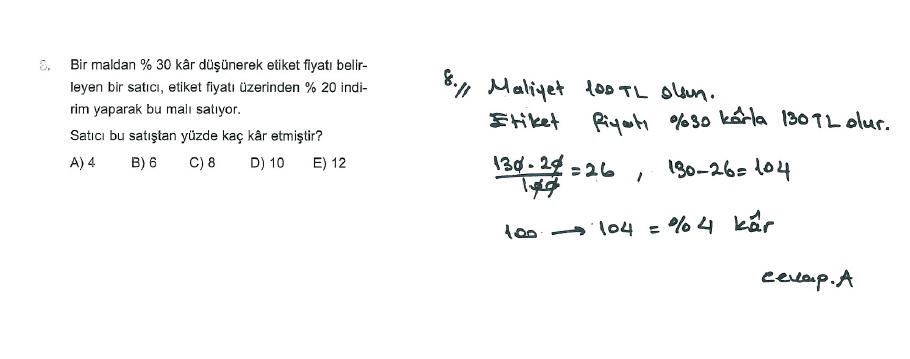 8. Bir maldan % 30 kâr düşünerek etiket fiyatı belir-
leyen bir satıcı, etiket fiyatı üzerinden % 20 indi-
rim yaparak bu malı satıyor.
Satıcı bu satıştan yüzde kaç kâr etmiştir?
A) 4 B) 6 C) 8 D) 10 E) 12
8.// Maliyet 100 TL olsun.
Etiket fiyatı %30 kârla 130 TL olur.
130 . 20 / 100 = 26 , 130-26= 104
100 → 104 = %4 kâr
cevap.A